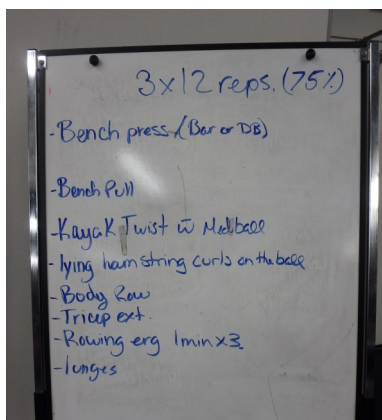 3x12 reps. (75%)
-Bench press (Bar or DB)
-Bench Pull
-Kayak Twist w̅ Medball
-lying hamstring curls on the ball
-Body Row
-Tricep ext.
-Rowing erg 1min x3
-lunges